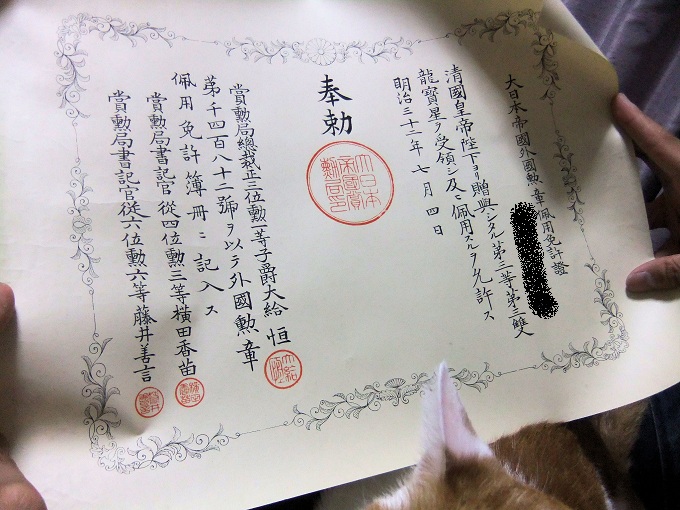 大日本帝國外國勲章佩用免許證
清國皇帝陛下ヨリ贈與シタル第三等第三雙
龍寶星ヲ受領シ及ヒ佩用スルヲ允許ス
明治三十二年七月四日
奉勅
大日本帝國賞勲局印
賞勲局總裁正三位勲一等子爵大給恒
第千四百八十二號ヲ以テ外國勲章
佩用免許簿冊ニ記入ス
賞勲局書記官從四位勲三等横田香苗
賞勲局書記官從六位勲六等藤井善言